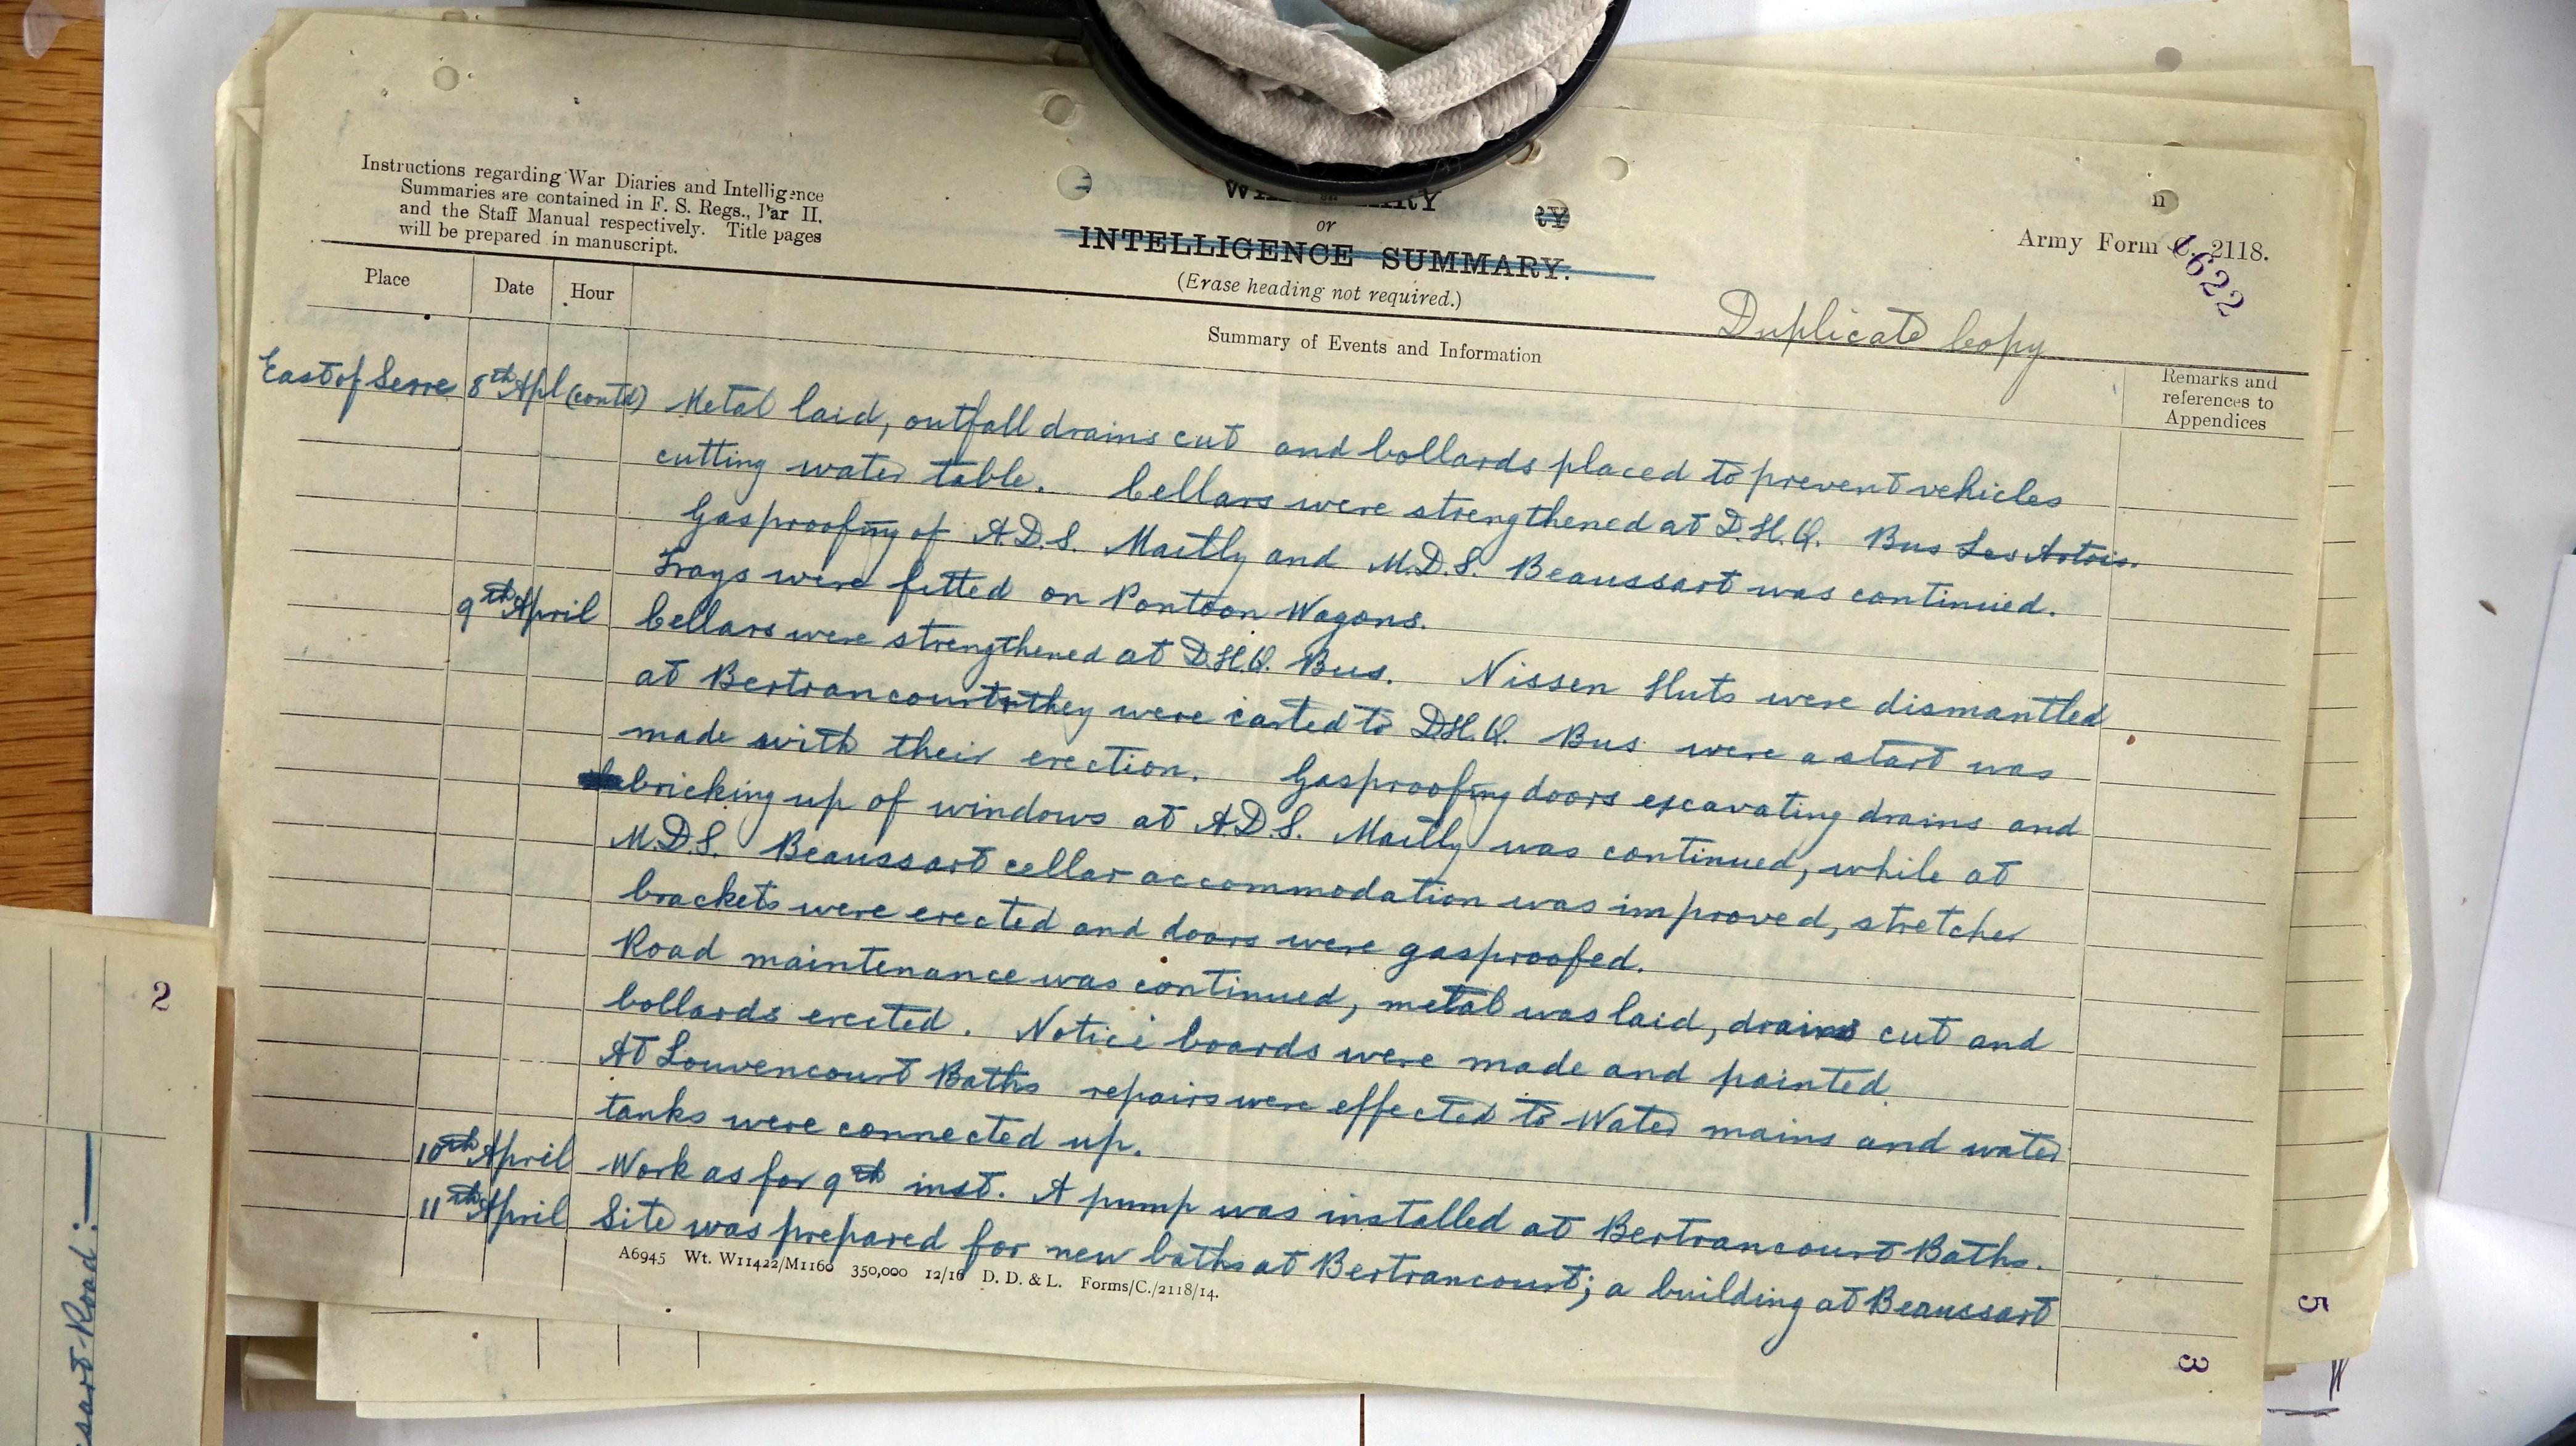 Instructions regarding War Diaries and Intelligence
Summaries are contained in F. S. Regs., Par II.
and the Staff Manual respectively. Title pages
will be prepared in manuscript.
or
INTELLIGENCE SUMMARY.
(Erase heading not required.)
Army Form C. 2118.
622
Duplicate Copy
Place
Date
Hour
Summary of Events and Information
Remarks and
references to
Appendices
East of Serre 8th Apl (contd) Metal laid, outfall drains cut and bollards placed to prevent vehicles
cutting water table. Cellars were strengthened at D.H.Q. Bus Les Artois.
Gasproofing of A.D.S. Mailly and M.D.S. Beaussart was continued.
Trays were fitted on Pontoon Wagons.
9th April Cellars were strengthened at D.H.Q. Bus. Nissen Huts were dismantled
at Bertrancourt they were carted to D.H.Q. Bus were a start was
made with their erection. Gasproofing doors excavating drains and
bricking up of windows at A.D.S. Mailly was continued, while at
M.D.S. Beaussart cellar accommodation was improved, stretcher
brackets were erected and doors were gasproofed.
Road maintenance was continued, metal was laid, drains cut and
bollards erected. Notice boards were made and painted
At Louvencourt Baths repairs were effected to Water mains and water
tanks were connected up.
10th April Work as for 9th inst. A pump was installed at Bertrancourt Baths.
11th April Site was prepared for new baths at Bertrancourt; a building at Beaussart
A6945 Wt. W11422/M1160 350,000 12/16 D. D. & L. Forms/C./2118/14.
2
Road:
5
3